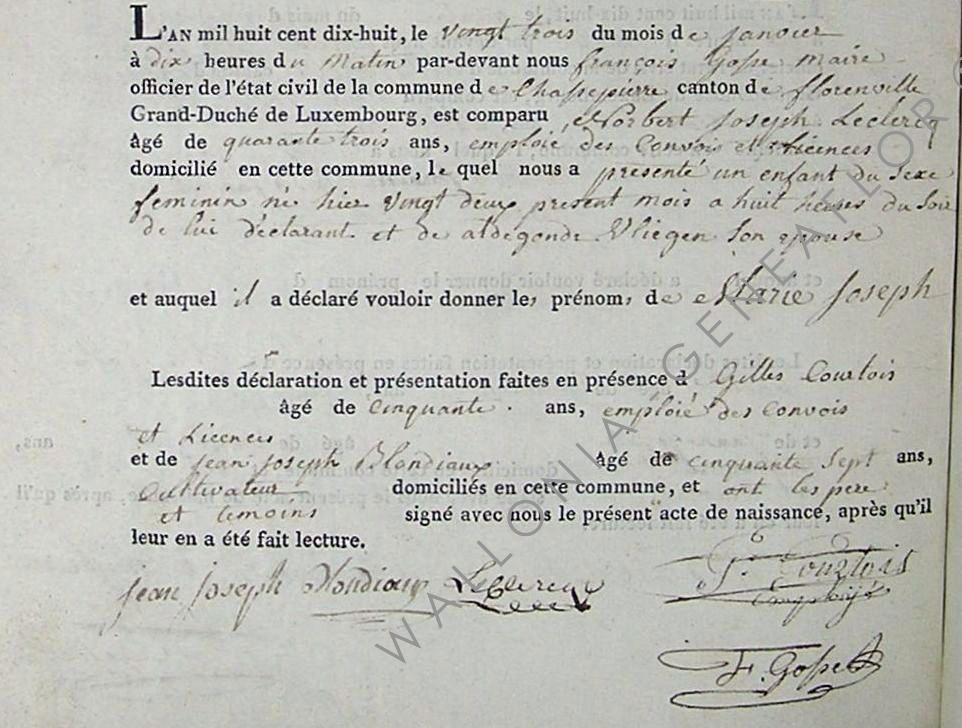 L'AN mil huit cent dix-huit, le vingt trois du mois de janvier
à dix heures du Matin par-devant nous françois Gofse maire
officier de l'état civil de la commune de Chafsepierre canton de florenville
Grand-Duché de Luxembourg, est comparu Norbert Joseph Leclercq
âgé de quarante trois ans, emploié des Convois et Licences
domicilié en cette commune, le quel nous a présenté un enfant du Sexe
feminin né hier vingt deux present mois a huit heures du Soir
de lui déclarant et de aldegonde Vliegen Son epouse
et auquel il a déclaré vouloir donner les prénoms de Marie Joseph
Lesdites déclaration et présentation faites en présence d Gilles Courtois
âgé de Cinquante ans, emploié des Convois
et Licences
et de jean joseph Blondiaux âgé de cinquante Sept ans,
Cultivateur domiciliés en cette commune, et ont les pere
et temoins signé avec nous le présent acte de naissance, après qu'il
leur en a été fait lecture.
jean joseph Blondiaux Leclercq G. Courtois
Employé
F. Gofse
WALLONIA GENEA FLOR